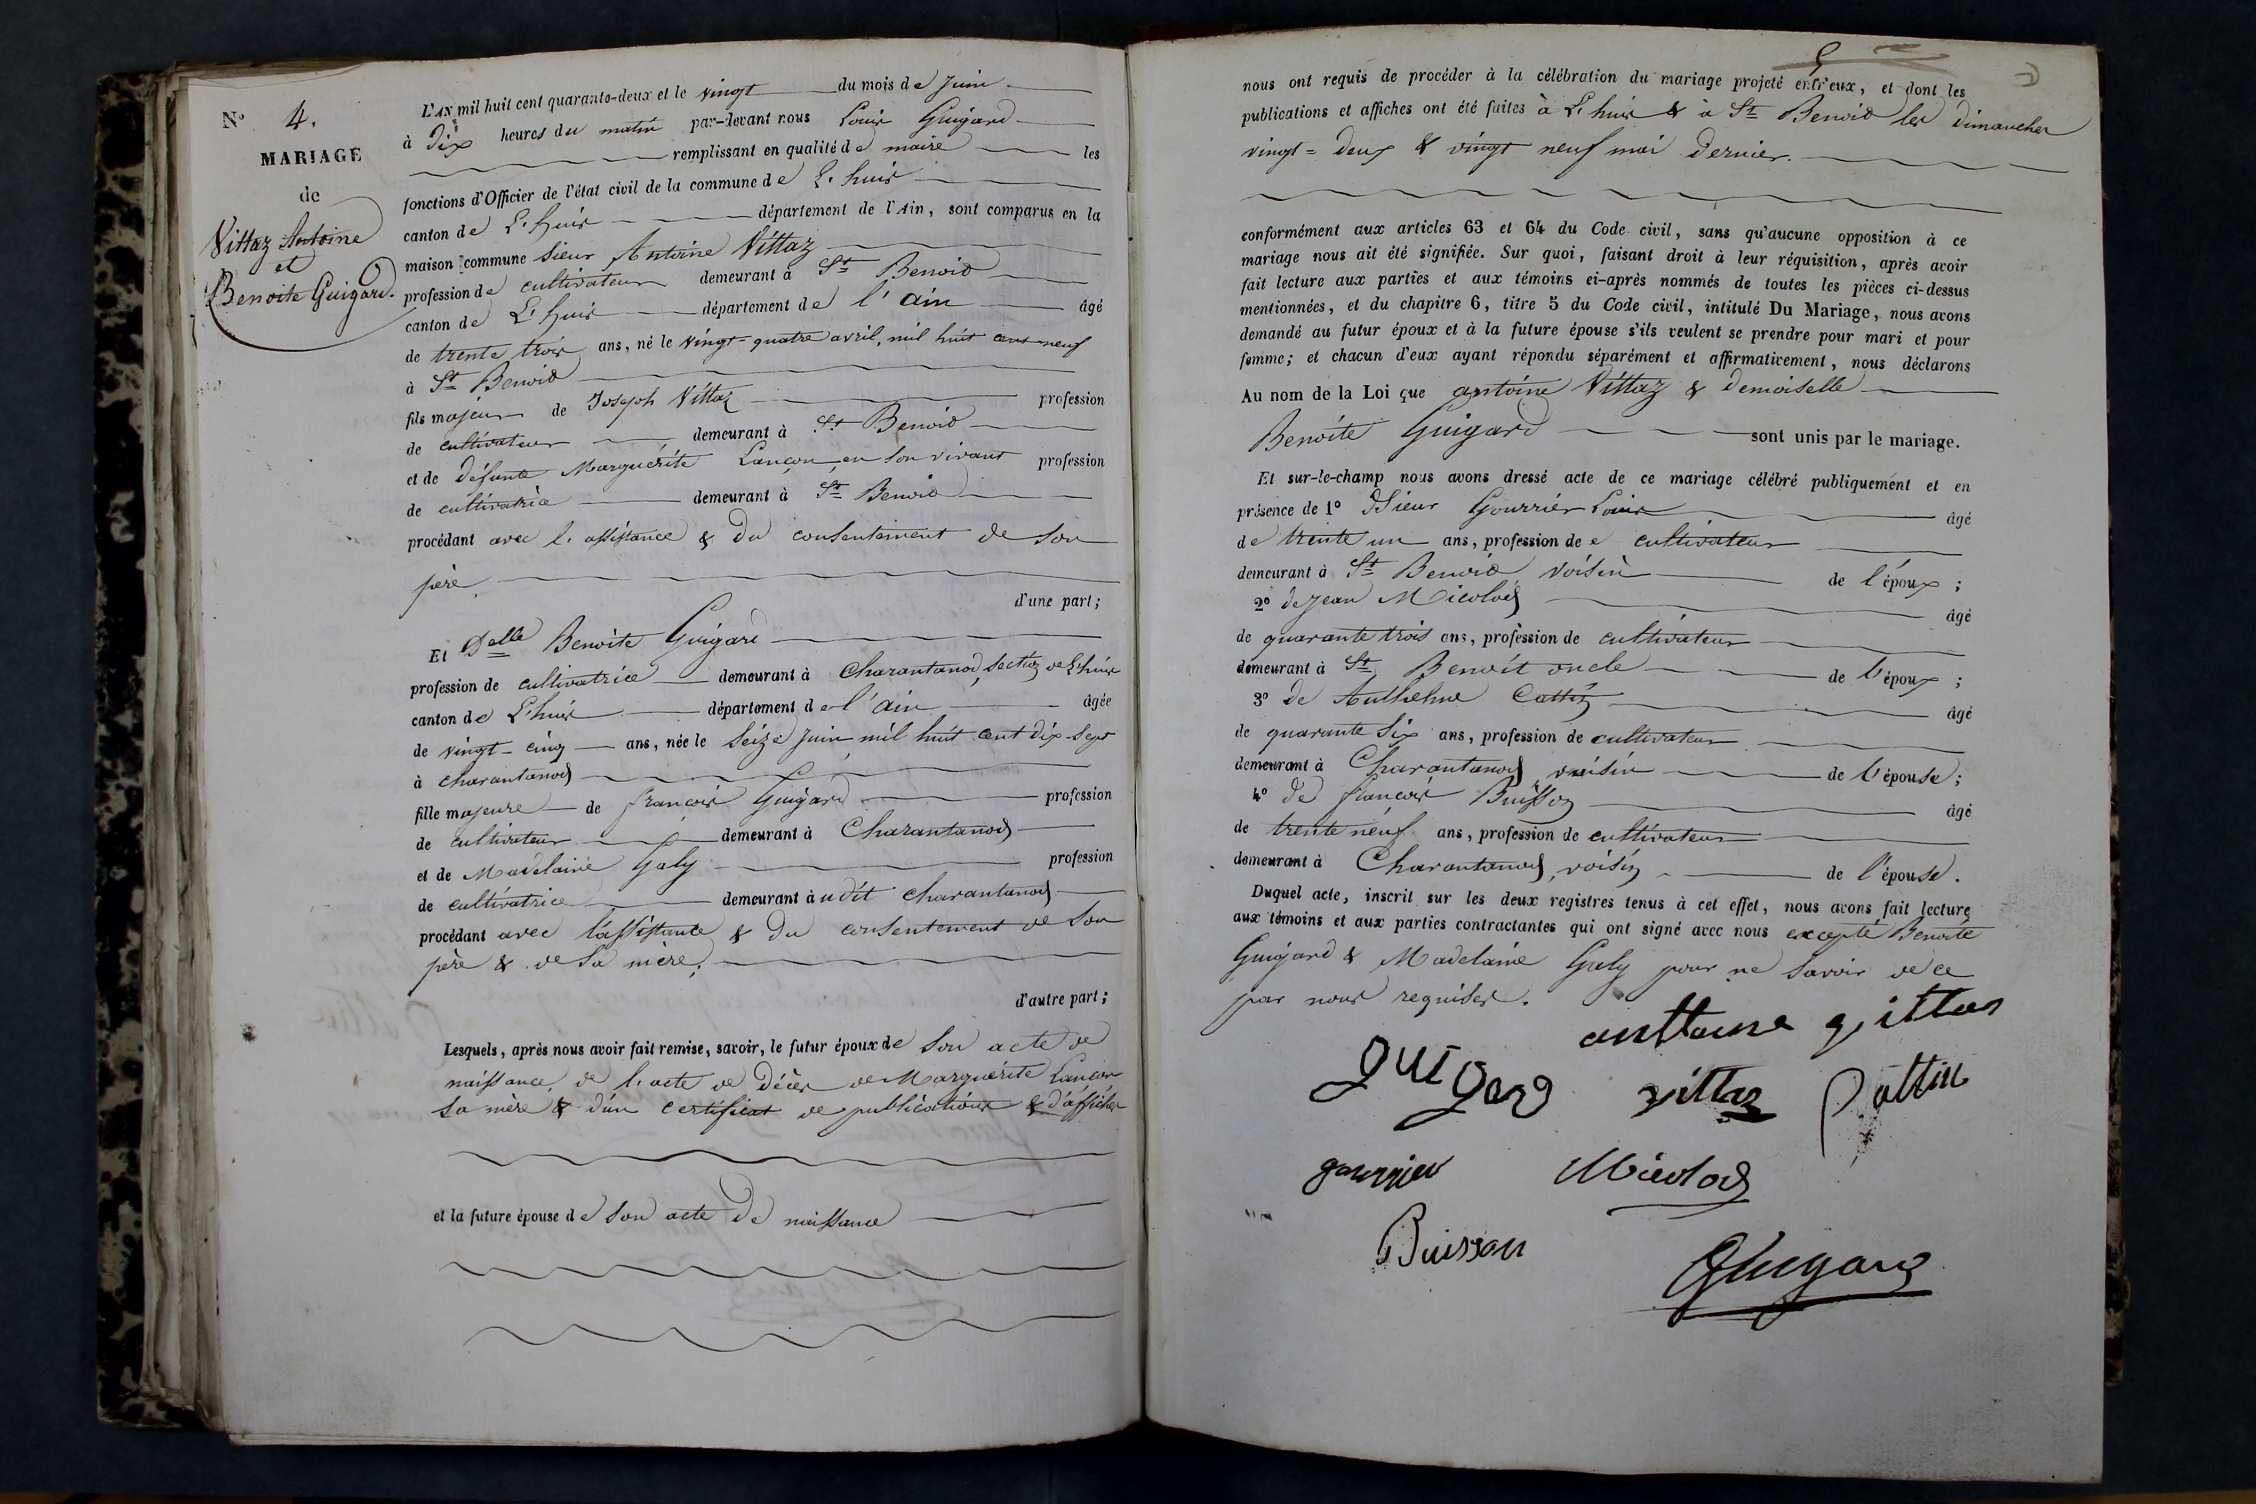 N° 4.
MARIAGE
de
Vittaz Antoine
et
Benoite Guigard.
L'AN mil huit cent quarante-deux et le vingt du mois de Juin
à Dix heures du matin par-devant nous Louis Guigard
remplissant en qualité de maire les
fonctions d'Officier de l'état civil de la commune de L. huis
canton de L. huis département de l'Ain, sont comparus en la
maison commune Sieur Antoine Vittaz
profession de cultivateur demeurant à St Benoid
canton de L. huis département de l'ain âgé
de trente trois ans, né le vingt-quatre avril, mil huit cent neuf
à St Benoid
fils majeur de Joseph Vittaz profession
de cultivateur demeurant à St Benoid
et de défunte Marguérite Lancon en son vivant profession
de cultivatrice demeurant à St Benoid
procédant avec l. assistance & du consentement de son
père
d'une part;
Et Delle Benoite Guigard
profession de cultivatrice demeurant à Charantanod, section de L'huis
canton de L. huis département de l'ain âgée
de vingt-cinq ans, née le seize juin mil huit cent dix-sept
à charantanod
fille majeure de françois Guigard profession
de cultivateur demeurant à Charantanod
et de Madelaine Galy profession
de cultivatrice demeurant à udit charantanod
procédant avec l'assistante & du consentement de son
père & de sa mère.
d'autre part;
Lesquels, après nous avoir fait remise, savoir, le futur époux de son acte de
naissance, de l. acte de décès de Marguérite Lancon
sa mère & d'un certificat de publications & d'affiches
et la future épouse de son acte de naissance
5
nous ont requis de procéder à la célébration du mariage projeté entr'eux, et dont les
publications et affiches ont été faites à L. huis & à St Benoid les dimanches
vingt-deux & vingt neuf mai dernier.
conformément aux articles 63 et 64 du Code civil, sans qu'aucune opposition à ce
mariage nous ait été signifiée. Sur quoi, faisant droit à leur réquisition, après avoir
fait lecture aux parties et aux témoins ci-après nommés de toutes les pièces ci-dessus
mentionnées, et du chapitre 6, titre 5 du Code civil, intitulé Du Mariage, nous avons
demandé au futur époux et à la future épouse s'ils veulent se prendre pour mari et pour
femme; et chacun d'eux ayant répondu séparément et affirmativement, nous déclarons
Au nom de la Loi que antoine Vittaz & demoiselle
Benoite Guigard sont unis par le mariage.
Et sur-le-champ nous avons dressé acte de ce mariage célébré publiquement et en
présence de 1° Sieur Gourrier Louis âgé
de trente un ans, profession de cultivateur
demeurant à St Benoid voisin de l'époux;
2° de Jean Micolod âgé
de quarante trois ans, profession de cultivateur
demeurant à St Benoit oncle de l'époux;
3° de Anthelme Cattin âgé
de quarante six ans, profession de cultivateur
demeurant à Charantanod, voisin de l'épouse;
4° de françois Buisson âgé
de trente neuf ans, profession de cultivateur
demeurant à Charantanod, voisin de l'épouse.
Duquel acte, inscrit sur les deux registres tenus à cet effet, nous avons fait lecture
aux témoins et aux parties contractantes qui ont signé avec nous excepté Benoite
Guigard & Madelaine Galy pour ne savoir de ce
par nous requises.
anttoine vittas
guigard vittaz Cattin
gourrier Micolod
Buisson
Guigard